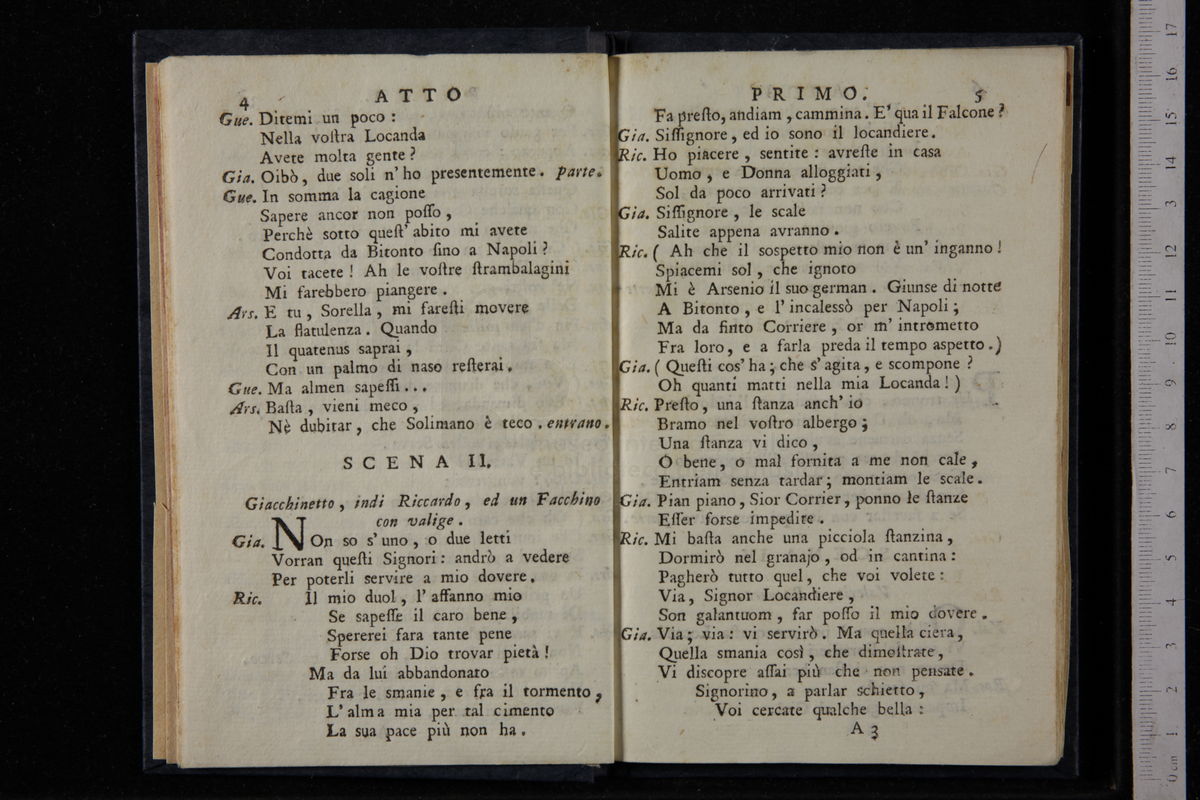 4
ATTO
Gue. Ditemi un poco :
Nella voſtra Locanda
Avete molta gente ?
Gia. Oibò, due soli n' ho presentemente. Parte.
Gue. In somma la cagione
Sapere ancor non poſſo ,
Perchè sotto queſt' abito mi avete
Condotta da Bitonto fino a Napoli ?
Voi tacete ! Ah le voſtre ſtrambalagini
Mi farebbero piangere .
Ars. E tu , Sorella , mi fareſti movere
La flatulenza . Quando
Il quatenus saprai ,
Con un palmo di naso reſterai.
Gue. Ma almen sapeſſi ...
Ars. Baſta , vieni meco ,
Nè dubitar, che Solimano è teco . entrano.
SCENA II.
Giacchinetto , indi Riccardo , ed un Facchino
con valige .
Gia. NOn so s' uno , o due letti
Vorran queſti Signori : andrò a vedere
Per poterli servire a mio dovere.
Ric. Il mio duol, l' affanno mio
Se sapeſſe il caro bene ,
Spererei fara tante pene
Forse oh Dio trovar pietà !
Ma da lui abbandonato
Fra le smanie , e fra il tormento ,
L' alma mia per tal cimento
La sua pace più non ha .
PRIMO.
5
Fa preſto, andiam , cammina . E' qua il Falcone ?
Gia. Siſſignore , ed io sono il locandiere.
Ric. Ho piacere , sentite : avreſte in casa
Uomo , e Donna alloggiati ,
Sol da poco arrivati ?
Gia. Siſſignore , le scale
Salite appena avranno .
Ric. ( Ah che il sospetto mio non è un' inganno !
Spiacemi sol , che ignoto
Mi è Arsenio il suo german . Giunse di notte
A Bitonto , e l' incalessò per Napoli ;
Ma da finto Corriere , or m' intrometto
Fra loro, e a farla preda il tempo aspetto .)
Gia. ( Queſti cos' ha ; che s' agita , e scompone ?
Oh quanti matti nella mia Locanda ! )
Ric. Preſto , una ſtanza anch' io
Bramo nel voſtro albergo ;
Una ſtanza vi dico ,
O bene, o mal fornita a me non cale ,
Entriam senza tardar ; montiam le scale .
Gia. Pian piano , Sior Corrier , ponno le ſtanze
Eſſer forse impedite .
Ric. Mi baſta anche una picciola ſtanzina ,
Dormirò nel granajo , od in cantina :
Pagherò tutto quel , che voi volete :
Via , Signor Locandiere ,
Son galantuom , far poſſo il mio dovere .
Gia. Via ; via : vi servirò . Ma quella ciera,
Quella smania così , che dimoſtrate ,
Vi discopre aſſai più che non pensate .
Signorino , a parlar schietto ,
Voi cercate qualche bella :
A 3
17
16
15
14
13
12
11
10
9
8
7
6
5
4
3
2
1
0 cm